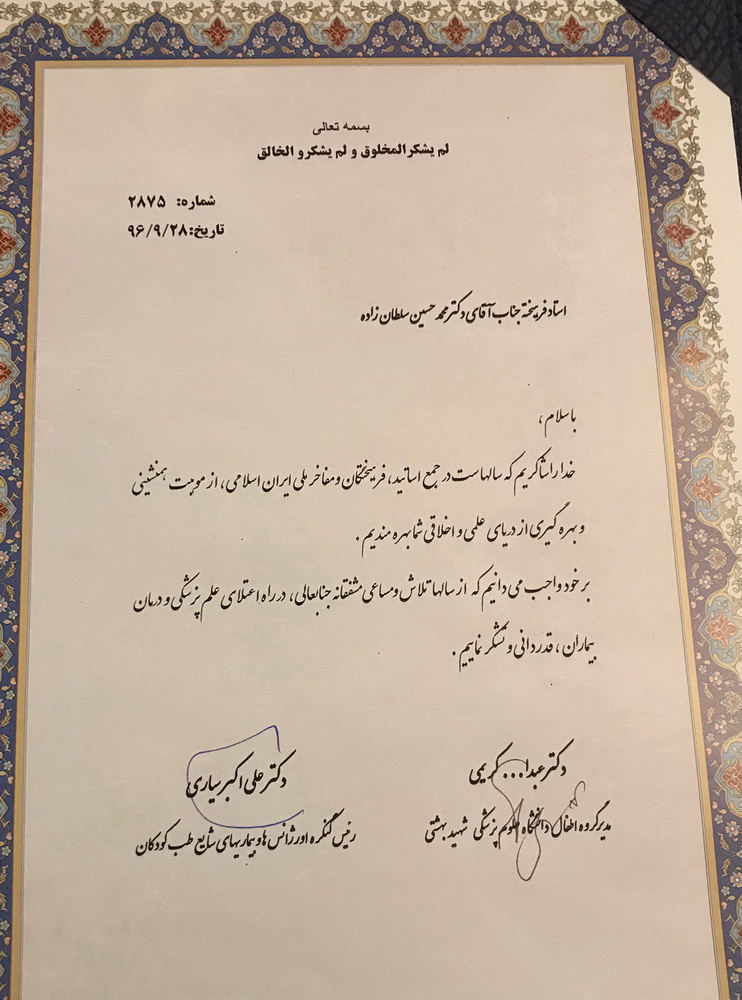 بسمه تعالی
لم یشکر المخلوق و لم یشکرو الخالق
شماره: ۲۸۷۵
تاریخ: ۹۶/۹/۲۸
استاد فرهیخته جناب آقای دکتر محمد حسین سلطان زاده
با سلام ،
خدا را شاکریم که سالهاست در جمع اساتید، فرهیختگان و مفاخر ملی ایران اسلامی ، از موهبت همنشینی
و بهره گیری از دریای علمی و اخلاقی شما بهره مندیم .
بر خود واجب می دانیم که از سالها تلاش و مساعی مشفقانه جنابعالی ، در راه اعتلای علم پزشکی و درمان
بیماران ، قدردانی و تشکر نماییم .
دکتر عبدا... کریمی
مدیر گروه اطفال دانشگاه علوم پزشکی شهید بهشتی
دکتر علی اکبر سیاری
رئیس کنگره اورژانس ها و بیماریهای شایع طب کودکان